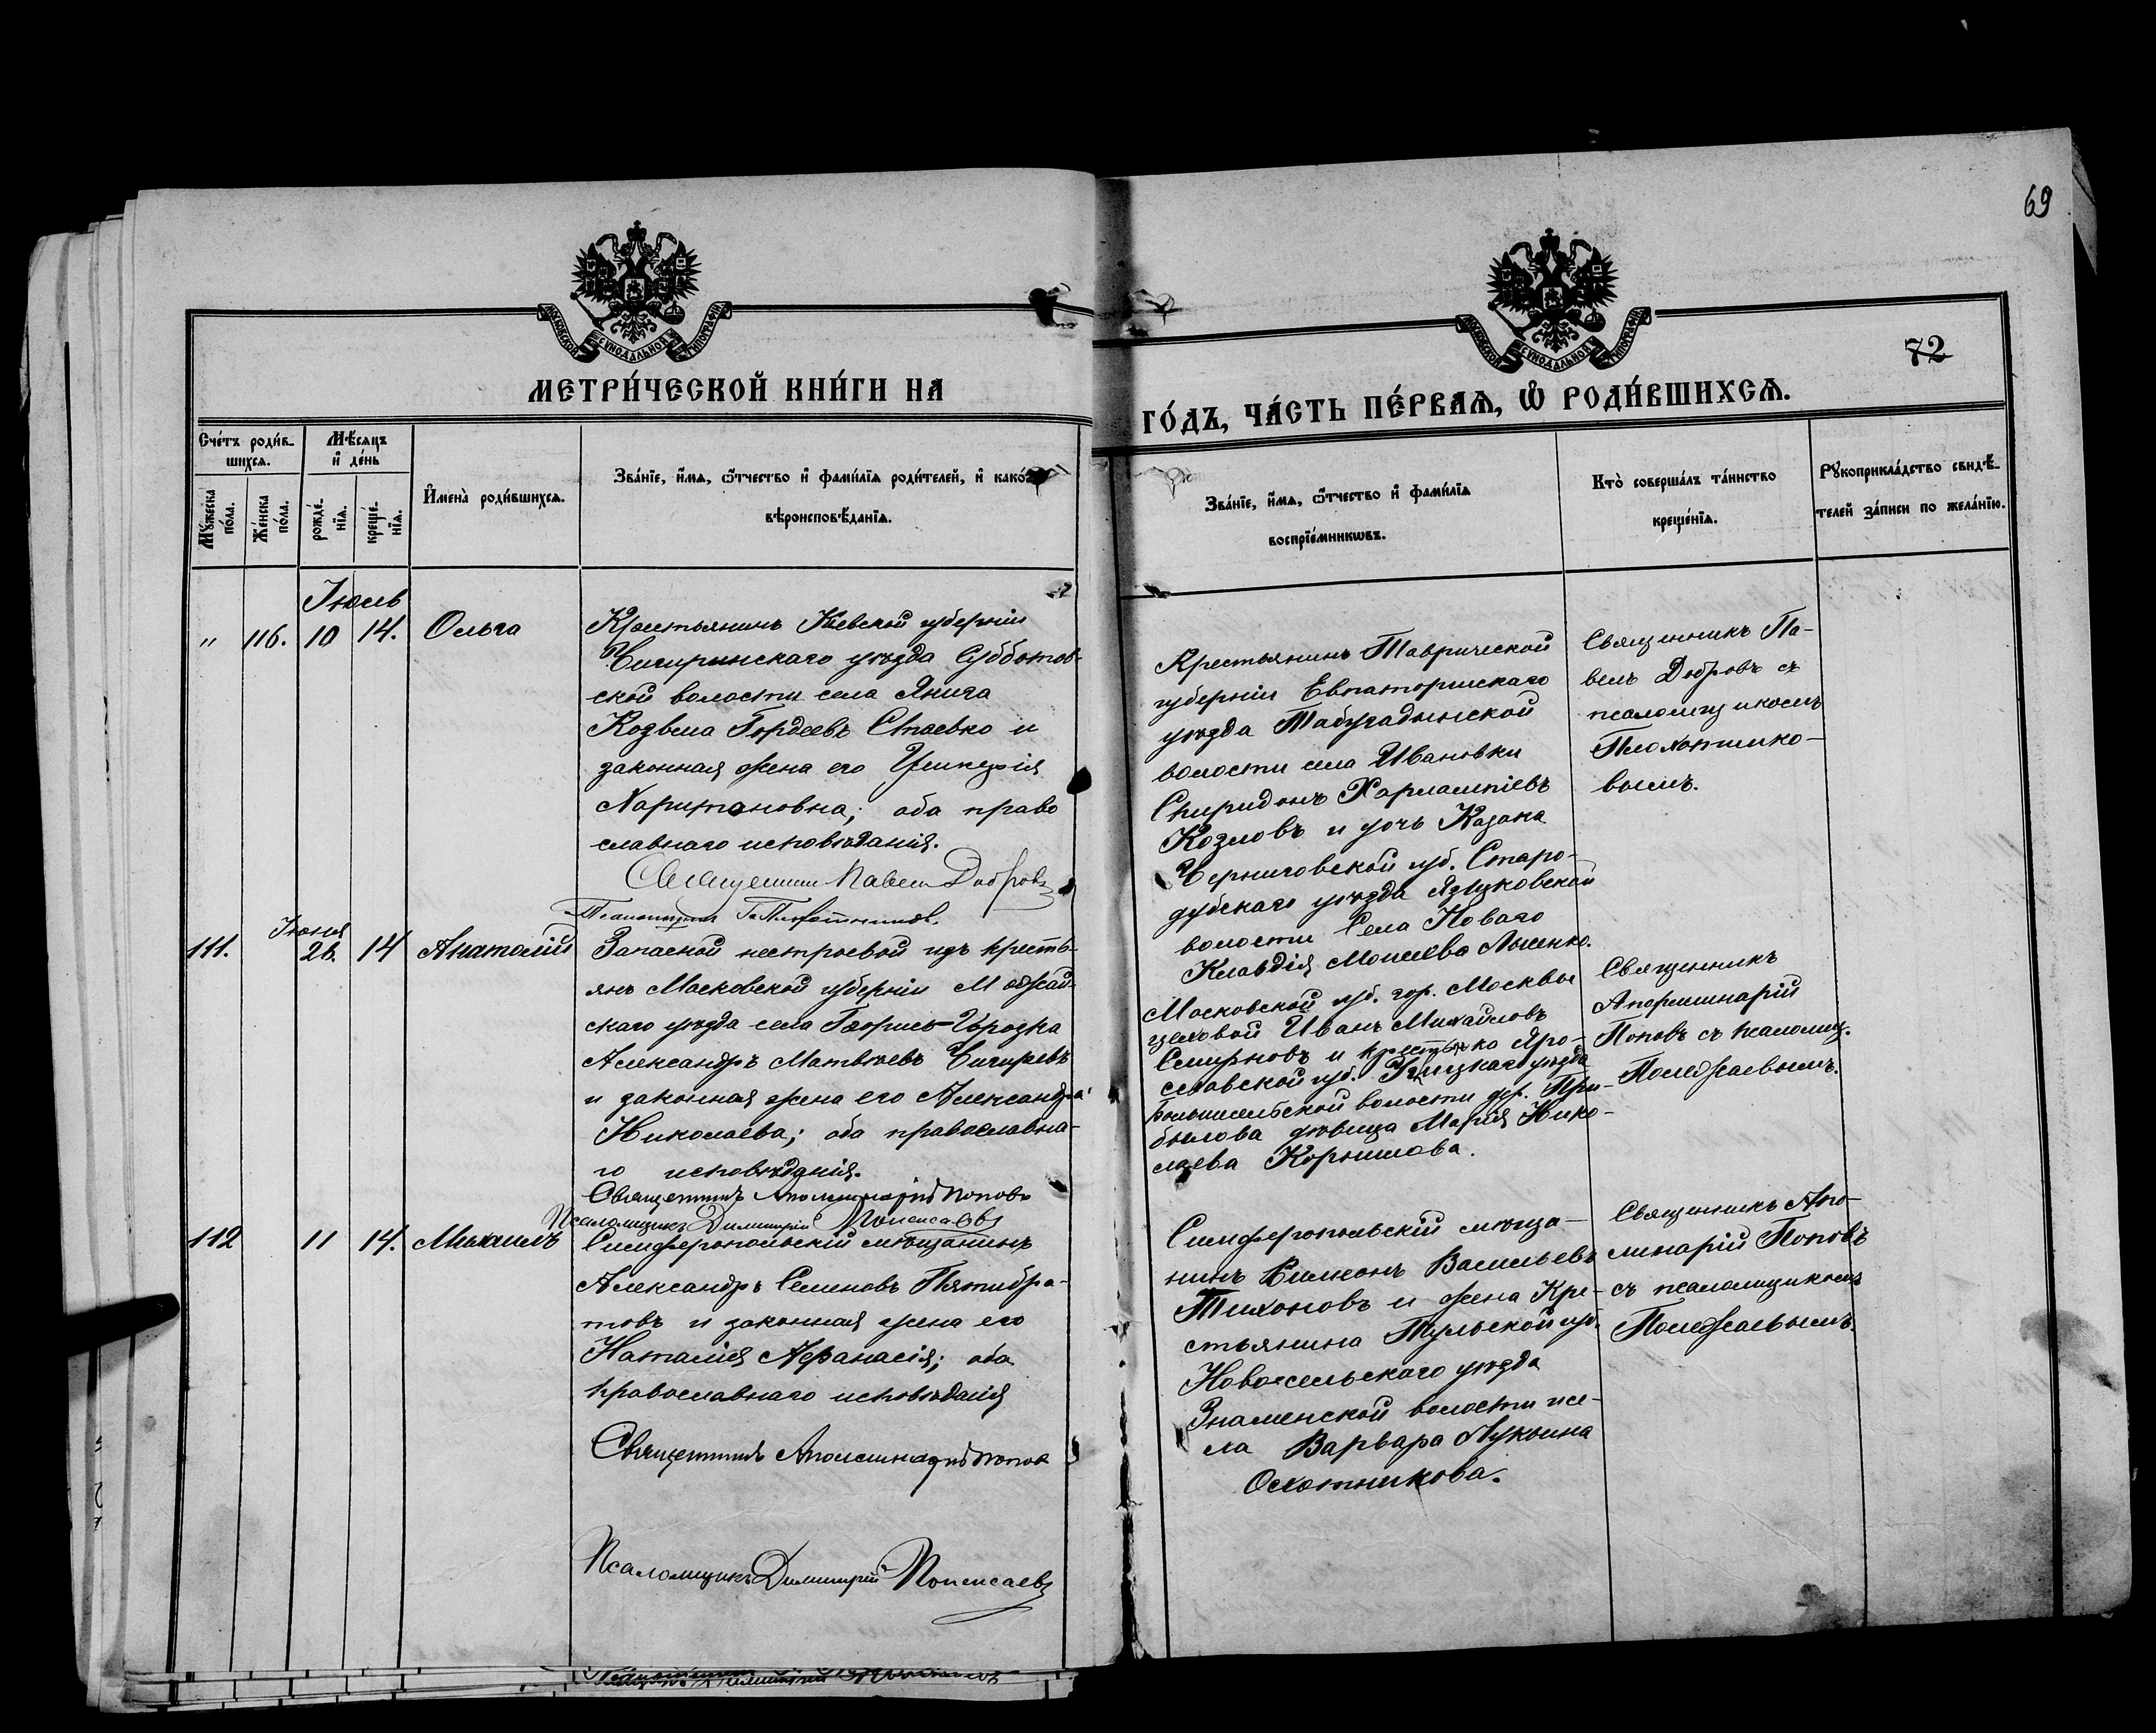 69
МОСКОВСКОЙ СѴНОДАЛЬНОЙ ТИПОГРАФІИ
МОСКОВСКОЙ СѴНОДАЛЬНОЙ ТИПОГРАФІИ
72
МЕТРИ́ЧЕСКОЙ КНИ́ГИ НА
ГО́ДЪ, ЧА́СТЬ ПЕ́РВАѦ, Ѽ РОДИ́ВШИХСѦ.
Сче́тъ роди́в-
шихсѧ.
Мѣ́сѧцъ
и҆ де́нь
Мꙋ́жеска
по́ла.
Же́нска
по́ла.
рожде́-
нїѧ.
креще́-
нїѧ.
И҆мена̀ роди́вшихсѧ.
Зва́нїе, и҆́мѧ, ѻ҆́тчество и҆ фами́лїѧ роди́телей, и҆ како́гѡ
вѣроисповѣ́данїѧ.
Зва́нїе, и҆́мѧ, ѻ҆́тчество и҆ фами́лїѧ
воспрїе́мникѡвъ.
Кто̀ соверша́лъ та́инство
креще́нїѧ.
Рꙋкоприкла́дство свидѣ́-
телей за́писи по жела́нїю.
Іюль
„ 116. 10 14. Ольга
Крестьянинъ Кіевской губерніи
Чигиринскаго уѣзда Субботов-
ской волости села Янича
Козьма Гордеевъ Стаевко и
законная жена его
Харитоновна; оба право
славнаго исповѣданія.
Священникъ Павелъ Добровъ
Псаломщикъ Г. Плохотниковъ.
Крестьянинъ Таврической
губерніи Евпаторійскаго
уѣзда Табулдинской
волости села Ивановки
Спиридонъ Харлампіевъ
Козловъ и дочь Казака
Черниговской губ. Старо-
дубскаго уѣзда
волости Села Новаго
Клавдія Моисеева Лысенко.
Священникъ Па-
велъ Добровъ съ
псаломщикомъ
Плохотнико-
вымъ.
Іюня
111. 26. 14 Анатолій
Запасной нестроевой изъ кресть-
янъ Московской губерніи Можай-
скаго уѣзда села Городка
Александръ Матвѣевъ Чигиревъ
и законная жена его Александра
Николаева; оба православна-
го исповѣданія.
Священникъ Аполлинарій Поповъ
Псаломщикъ Димитрій Полежаевъ
Московской губ. гор. Москвы
цеховой Иванъ Михайловъ
Смирновъ и крестьянка Яро-
славской губ. Угличскаго уѣзда
Большесельской волости дер. При-
былова дѣвица Марія Нико-
лаева Корнилова.
Священникъ
Аполлинарій
Поповъ съ псаломщ.
Полежаевымъ.
112 11 14. Михаилъ
Симферопольскій мѣщанинъ
Александръ Семеновъ Пятибра-
товъ и законная жена его
Наталія Афанасія; оба
православнаго исповѣданія
Священникъ Аполлинарій Поповъ
Псаломщикъ Димитрій Полежаевъ
Симферопольскій мѣща-
нинъ Симеонъ Васильевъ
Тихоновъ и жена Кре-
стьянина Тульской губ.
Новосельскаго уѣзда
Знаменской волости
села Варвара Лукьина
Охотникова.
Священникъ Апо-
линарій Поповъ
съ псаломщикомъ
Полежаевымъ.